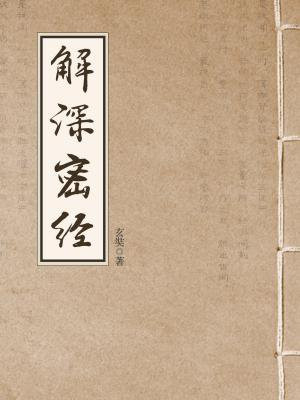 解深密经
玄奘◎著